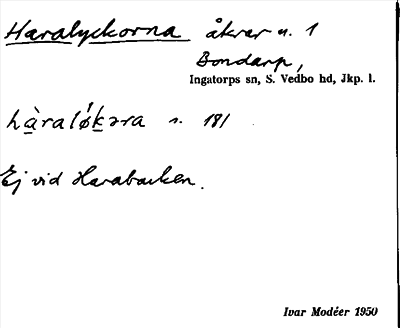 Haralyckorna åkrar n. 1
Bondarp,
Ingatorps sn, S. Vedbo hd, Jkp. l.
hàralǿkəra s. 181
Ej vid Harabacken.
Ivar Modéer 1950